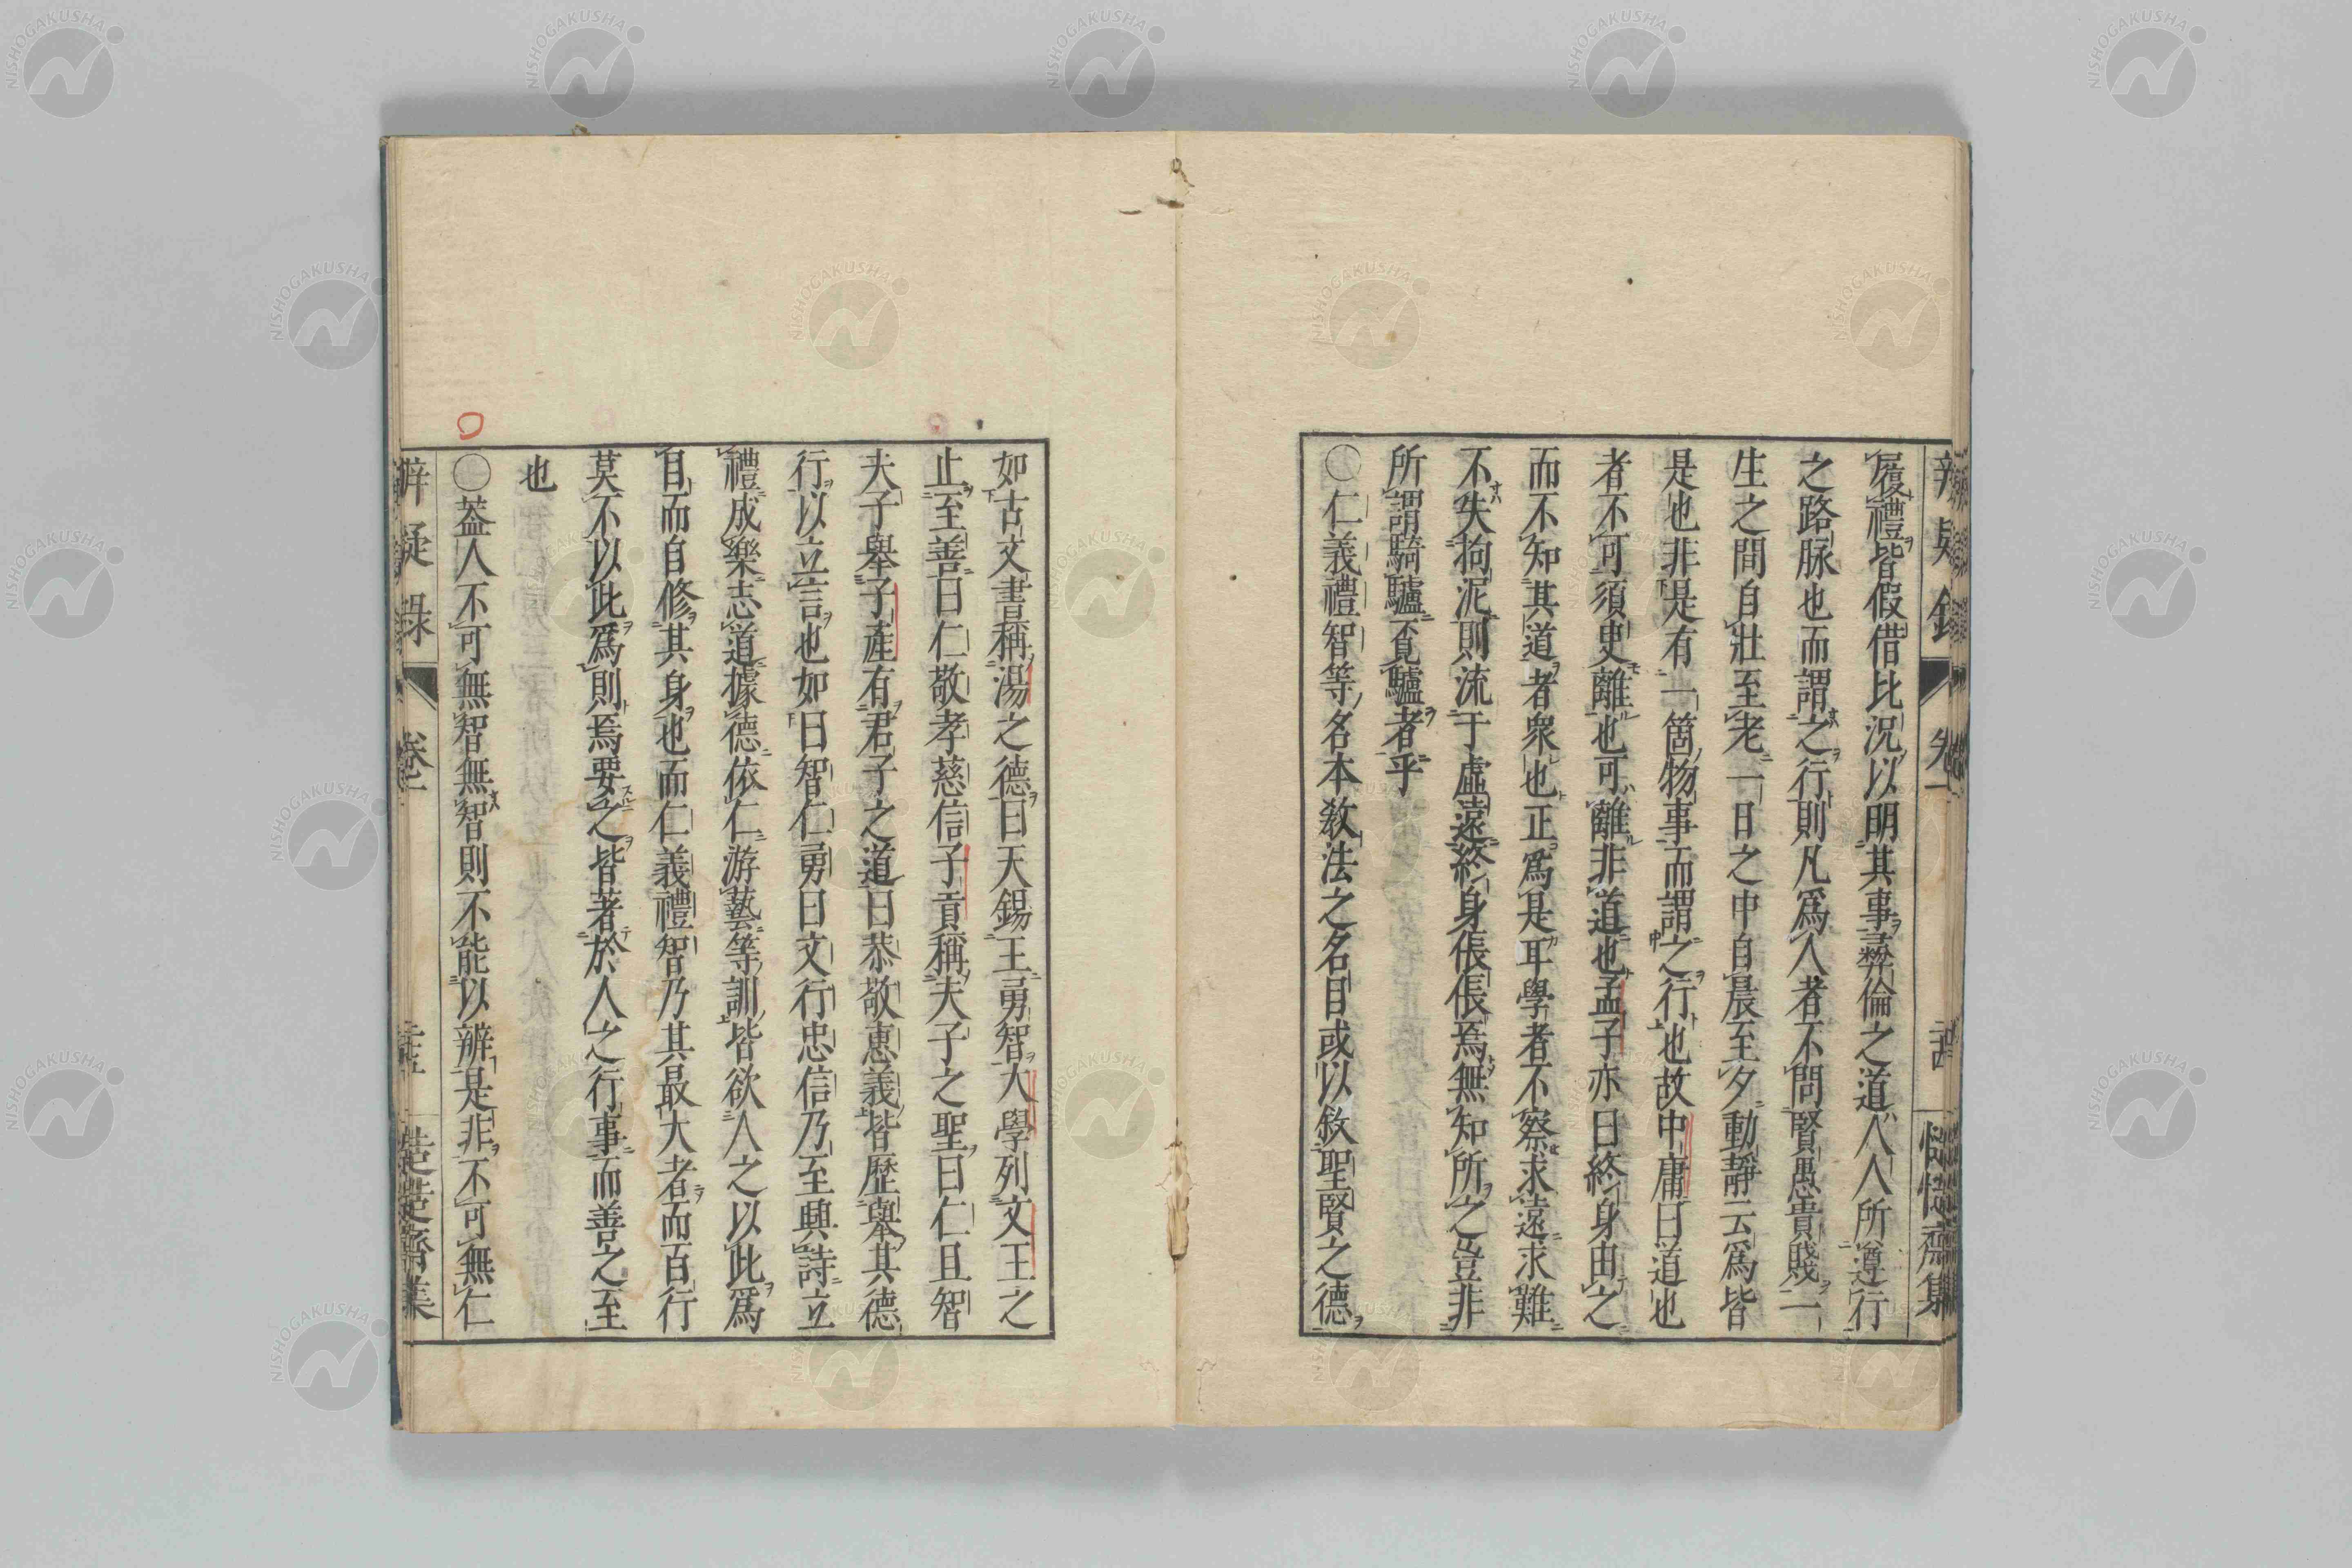 履禮皆假借比況以明其事彜倫之道人人所遵行
之路脉也而謂之行則凡爲人者不問賢愚貴賤一
生之間自壯至老一日之中自晨至夕動靜云爲皆
是也非是有一箇物事而謂之行也故中庸曰道也
者不可須臾離也可離非道也孟子亦曰終身由之
而不知其道者衆也正爲是耳學者不察求遠求難
不失拘泥則流于虛遠終身倀倀焉無知所之豈非
所謂騎驢覓驢者乎
○仁義禮智等名本教法之名目或以敘聖賢之德
如古文書稱湯之德曰天錫王勇智大學列文王之
止至善曰仁敬孝慈信子貢稱夫子之聖曰仁且智
夫子舉子產有君子之道曰恭敬惠義皆歷舉其德
行以立言也如曰智仁勇曰文行忠信乃至興詩立
禮成樂志道據德依仁游藝等訓皆欲人之以此爲
目而自修其身也而仁義禮智乃其最大者而百行
莫不以此爲則焉要之皆著於人之行事而善之至
也
○蓋人不可無智無智則不能以辨是非不可無仁
辨疑錄
卷一
二十五
NISHOGAKUSHA